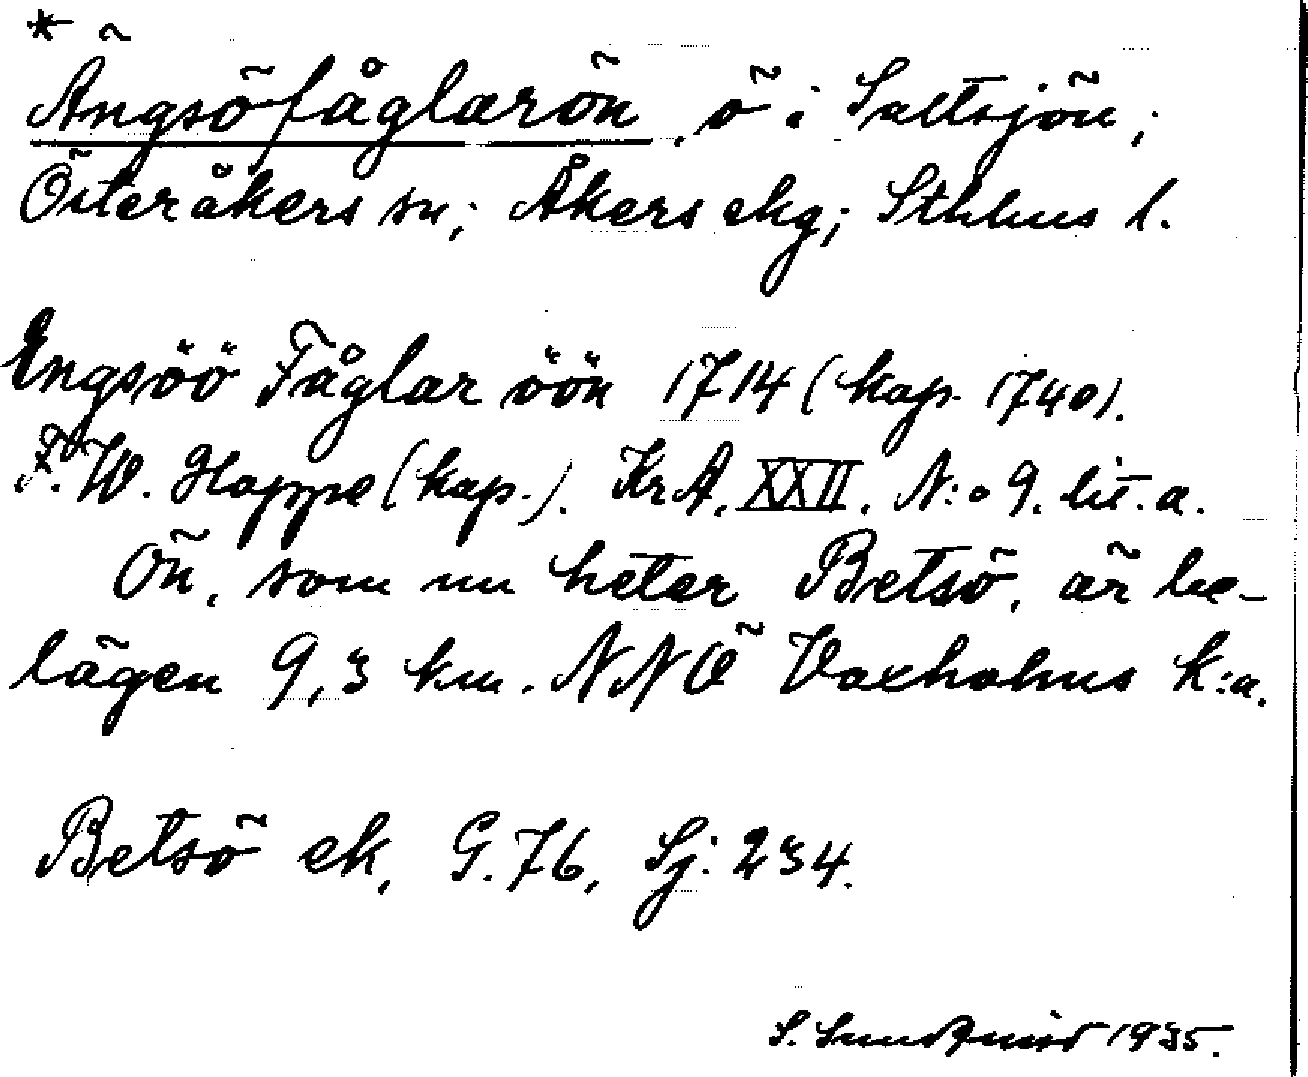 * Ängsöfåglarön, ö i Saltsjön;
Österåkers sn; Åkers skg; Sthlms l.
Engsöö Fåglar öön 1714 (kop. 1740).
F. W. Hoppe (kop.). Kr A. XXII. N:o 9. lit. a.
Ön, som nu heter Betsö, är be-
lägen 9,3 km. NNÖ Vaxholms k:a.
Betsö ek, G. 76, Sj: 234.
S. Sundquist 1935.